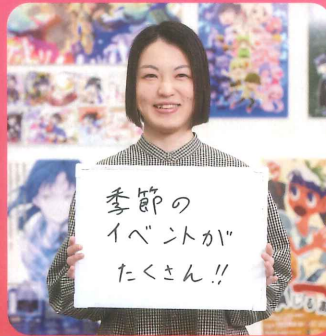 季節の
イベントが
たくさん!!